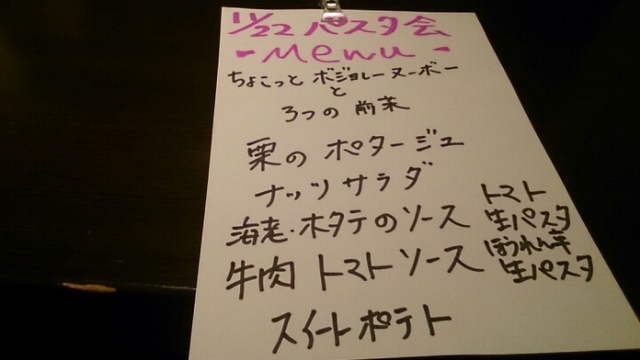 11/22 パスタ会
-Menu-
ちょこっと ボジョレーヌーボー
と
3つの 前菜
栗の ポタージュ
ナッツサラダ
海老・ホタテのソース トマト生パスタ
牛肉 トマトソース ほうれん草生パスタ
スイートポテト